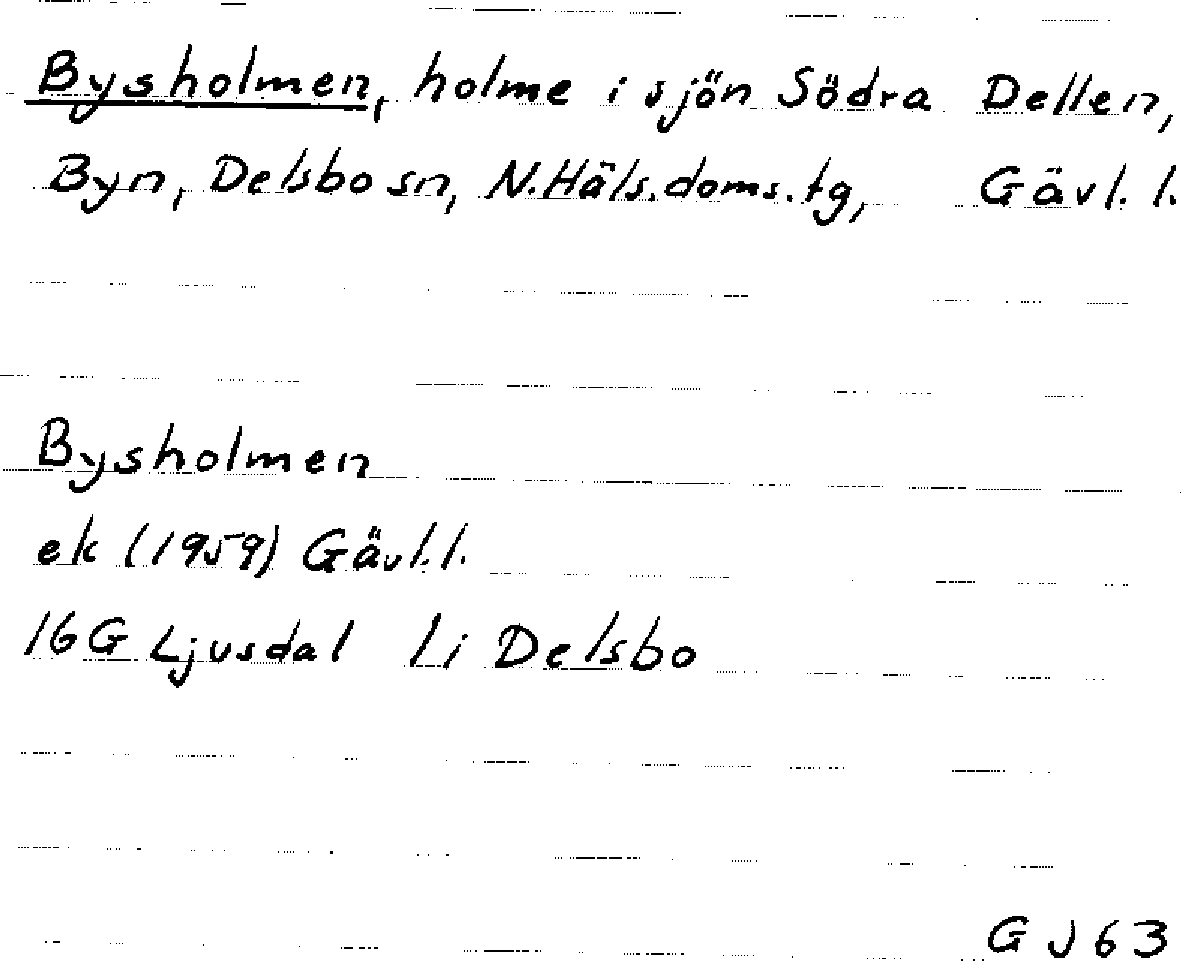 Bysholmen, holme i sjön Södra Dellen,
Byn, Delsbo sn, N.Häls.doms.tg, Gävl. l.
Bysholmen
ek (1959) Gävl.l.
16G Ljusdal Li Delsbo
G J 63